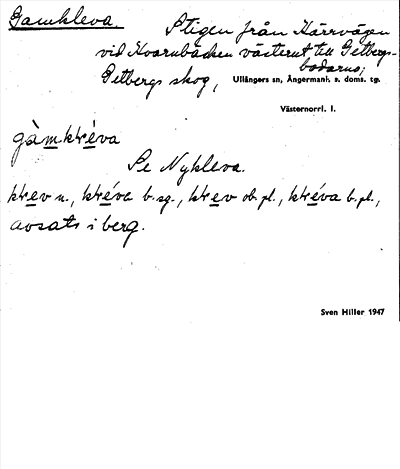 Gamkleva Stigen från Kärrvägen
vid Kvarnbäcken västerut till Getbergs-
bodarna;
Getbergs skog, Ullångers sn, Ångermanl. s. doms. tg.
Västernorrl. l.
gàmkréva
Se Nykleva.
krev n., kréve b. sg., krev ob. pl., kréva b. pl.,
avsats i berg.
Sven Hiller 1947